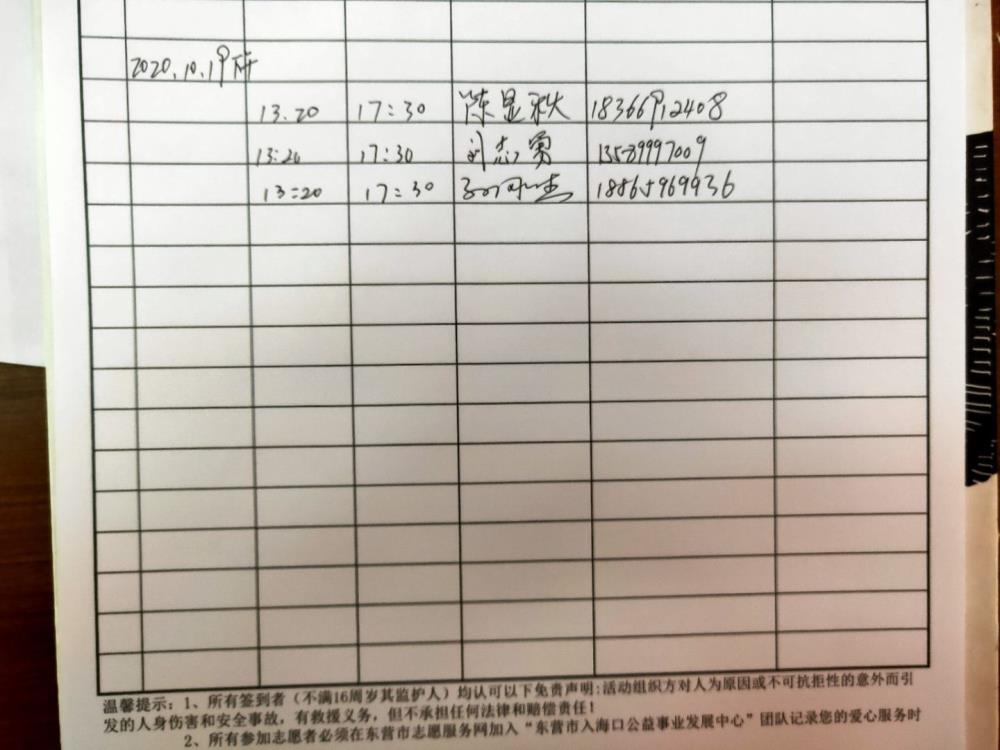 2020.10.19
13.20 17:30 陈显秋 18366912408
13:20 17:30 刘志勇 13589997009
13:20 17:30 18865969936
温馨提示：1、所有签到者（不满16周岁其监护人）均认可以下免责声明:活动组织方对人为原因或不可抗拒性的意外而引
发的人身伤害和安全事故，有救援义务，但不承担任何法律和赔偿责任！
2、所有参加志愿者必须在东营市志愿服务网加入“东营市入海口公益事业发展中心”团队记录您的爱心服务时